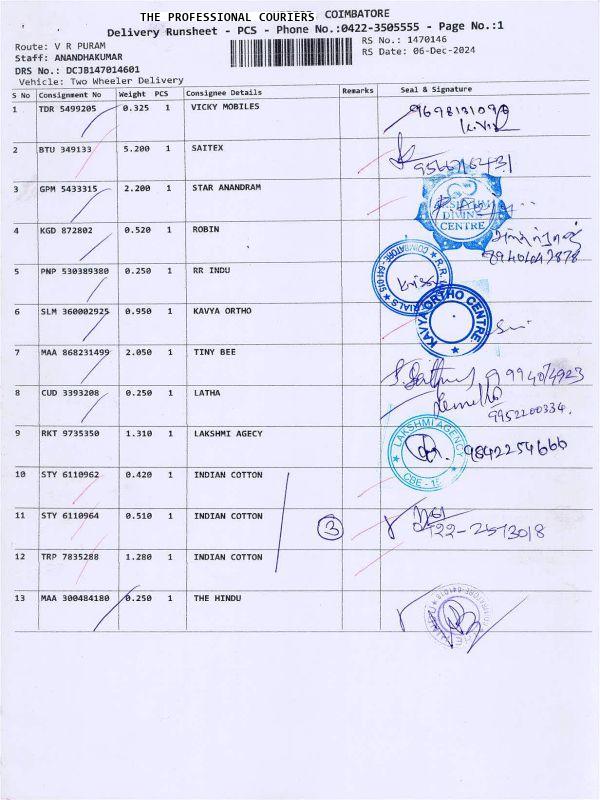 THE PROFESSIONAL COURIERS COIMBATORE
Delivery Runsheet - PCS - Phone No.:0422-3505555 - Page No.:1
Route: V R PURAM
RS No.: 1470146
Staff: ANANDHAKUMAR
RS Date: 06-Dec-2024
DRS No.: DCJB147014601
Vehicle: Two Wheeler Delivery
S No Consignment No Weight PCS Consignee Details Remarks Seal & Signature
1 TDR 5499205 0.325 1 VICKY MOBILES
2 BTU 349133 5.200 1 SAITEX
3 GPM 5433315 2.200 1 STAR ANANDRAM
DIVINE
CENTRE
4 KGD 872802 0.520 1 ROBIN
5 PNP 530389380 0.250 1 RR INDU
6 SLM 360002925 0.950 1 KAVYA ORTHO
KAVYA ORTHO CENTRE
7 MAA 868231499 2.050 1 TINY BEE
8 CUD 3393208 0.250 1 LATHA
9952200334.
9 RKT 9735350 1.310 1 LAKSHMI AGECY
LAKSHMI AGENCY
CBE - 15
9842254666
10 STY 6110962 0.420 1 INDIAN COTTON
11 STY 6110964 0.510 1 INDIAN COTTON
3
0422-2573018
12 TRP 7835288 1.280 1 INDIAN COTTON
13 MAA 300484180 0.250 1 THE HINDU